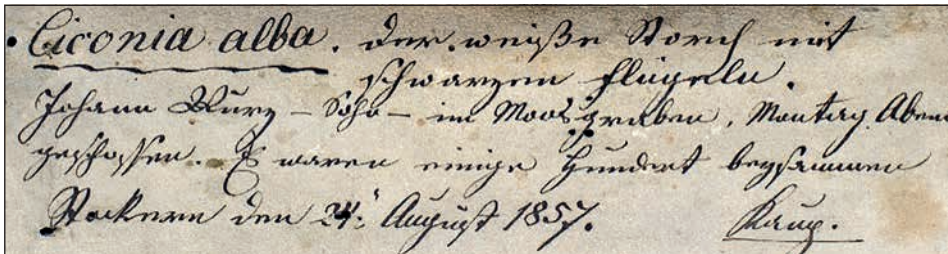 • Ciconia alba. Der weiße Storch mit
schwarzen Flügeln.
Johann Wurz – Sohn – im Moosgraben, Montag Aben
geschossen. Es waren einige Hundert beysammen
Stockern den 24. August 1857.
Krug.